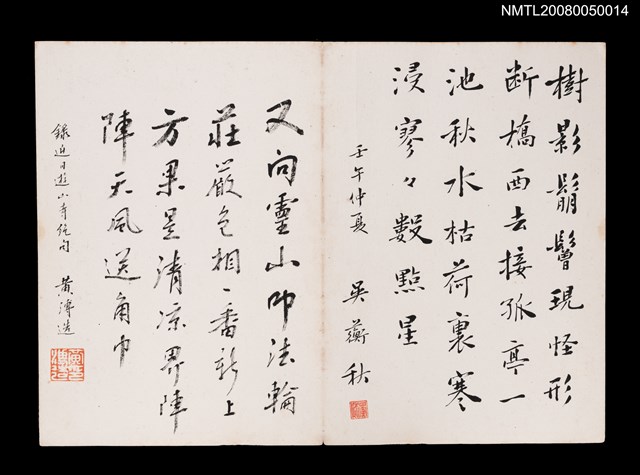 NMTL20080050014
樹影鬅鬙現怪形
断橋西去接孤亭一
池秋水枯荷裏寒
浸寥々數點星
壬午仲夏
吳蘅秋
又向靈山叩法輪
莊嚴色相一番新上
方果是清凉界陣
陣天風送角巾
錄近日遊山寺絕句
黃溥造